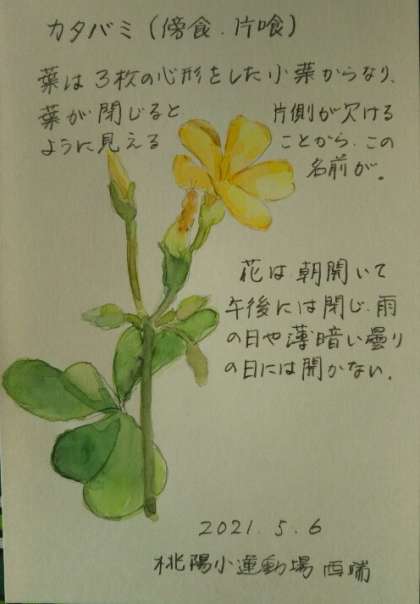 カタバミ(傍食.片喰)
葉は3枚の心形をした小葉からなり、
葉が閉じると 片側が欠ける
ように見える ことから.この
名前が。
花は朝開いて
午後には閉じ.雨
の日や薄暗い曇り
の日には開かない.
2021.5.6
桃陽小運動場 西端